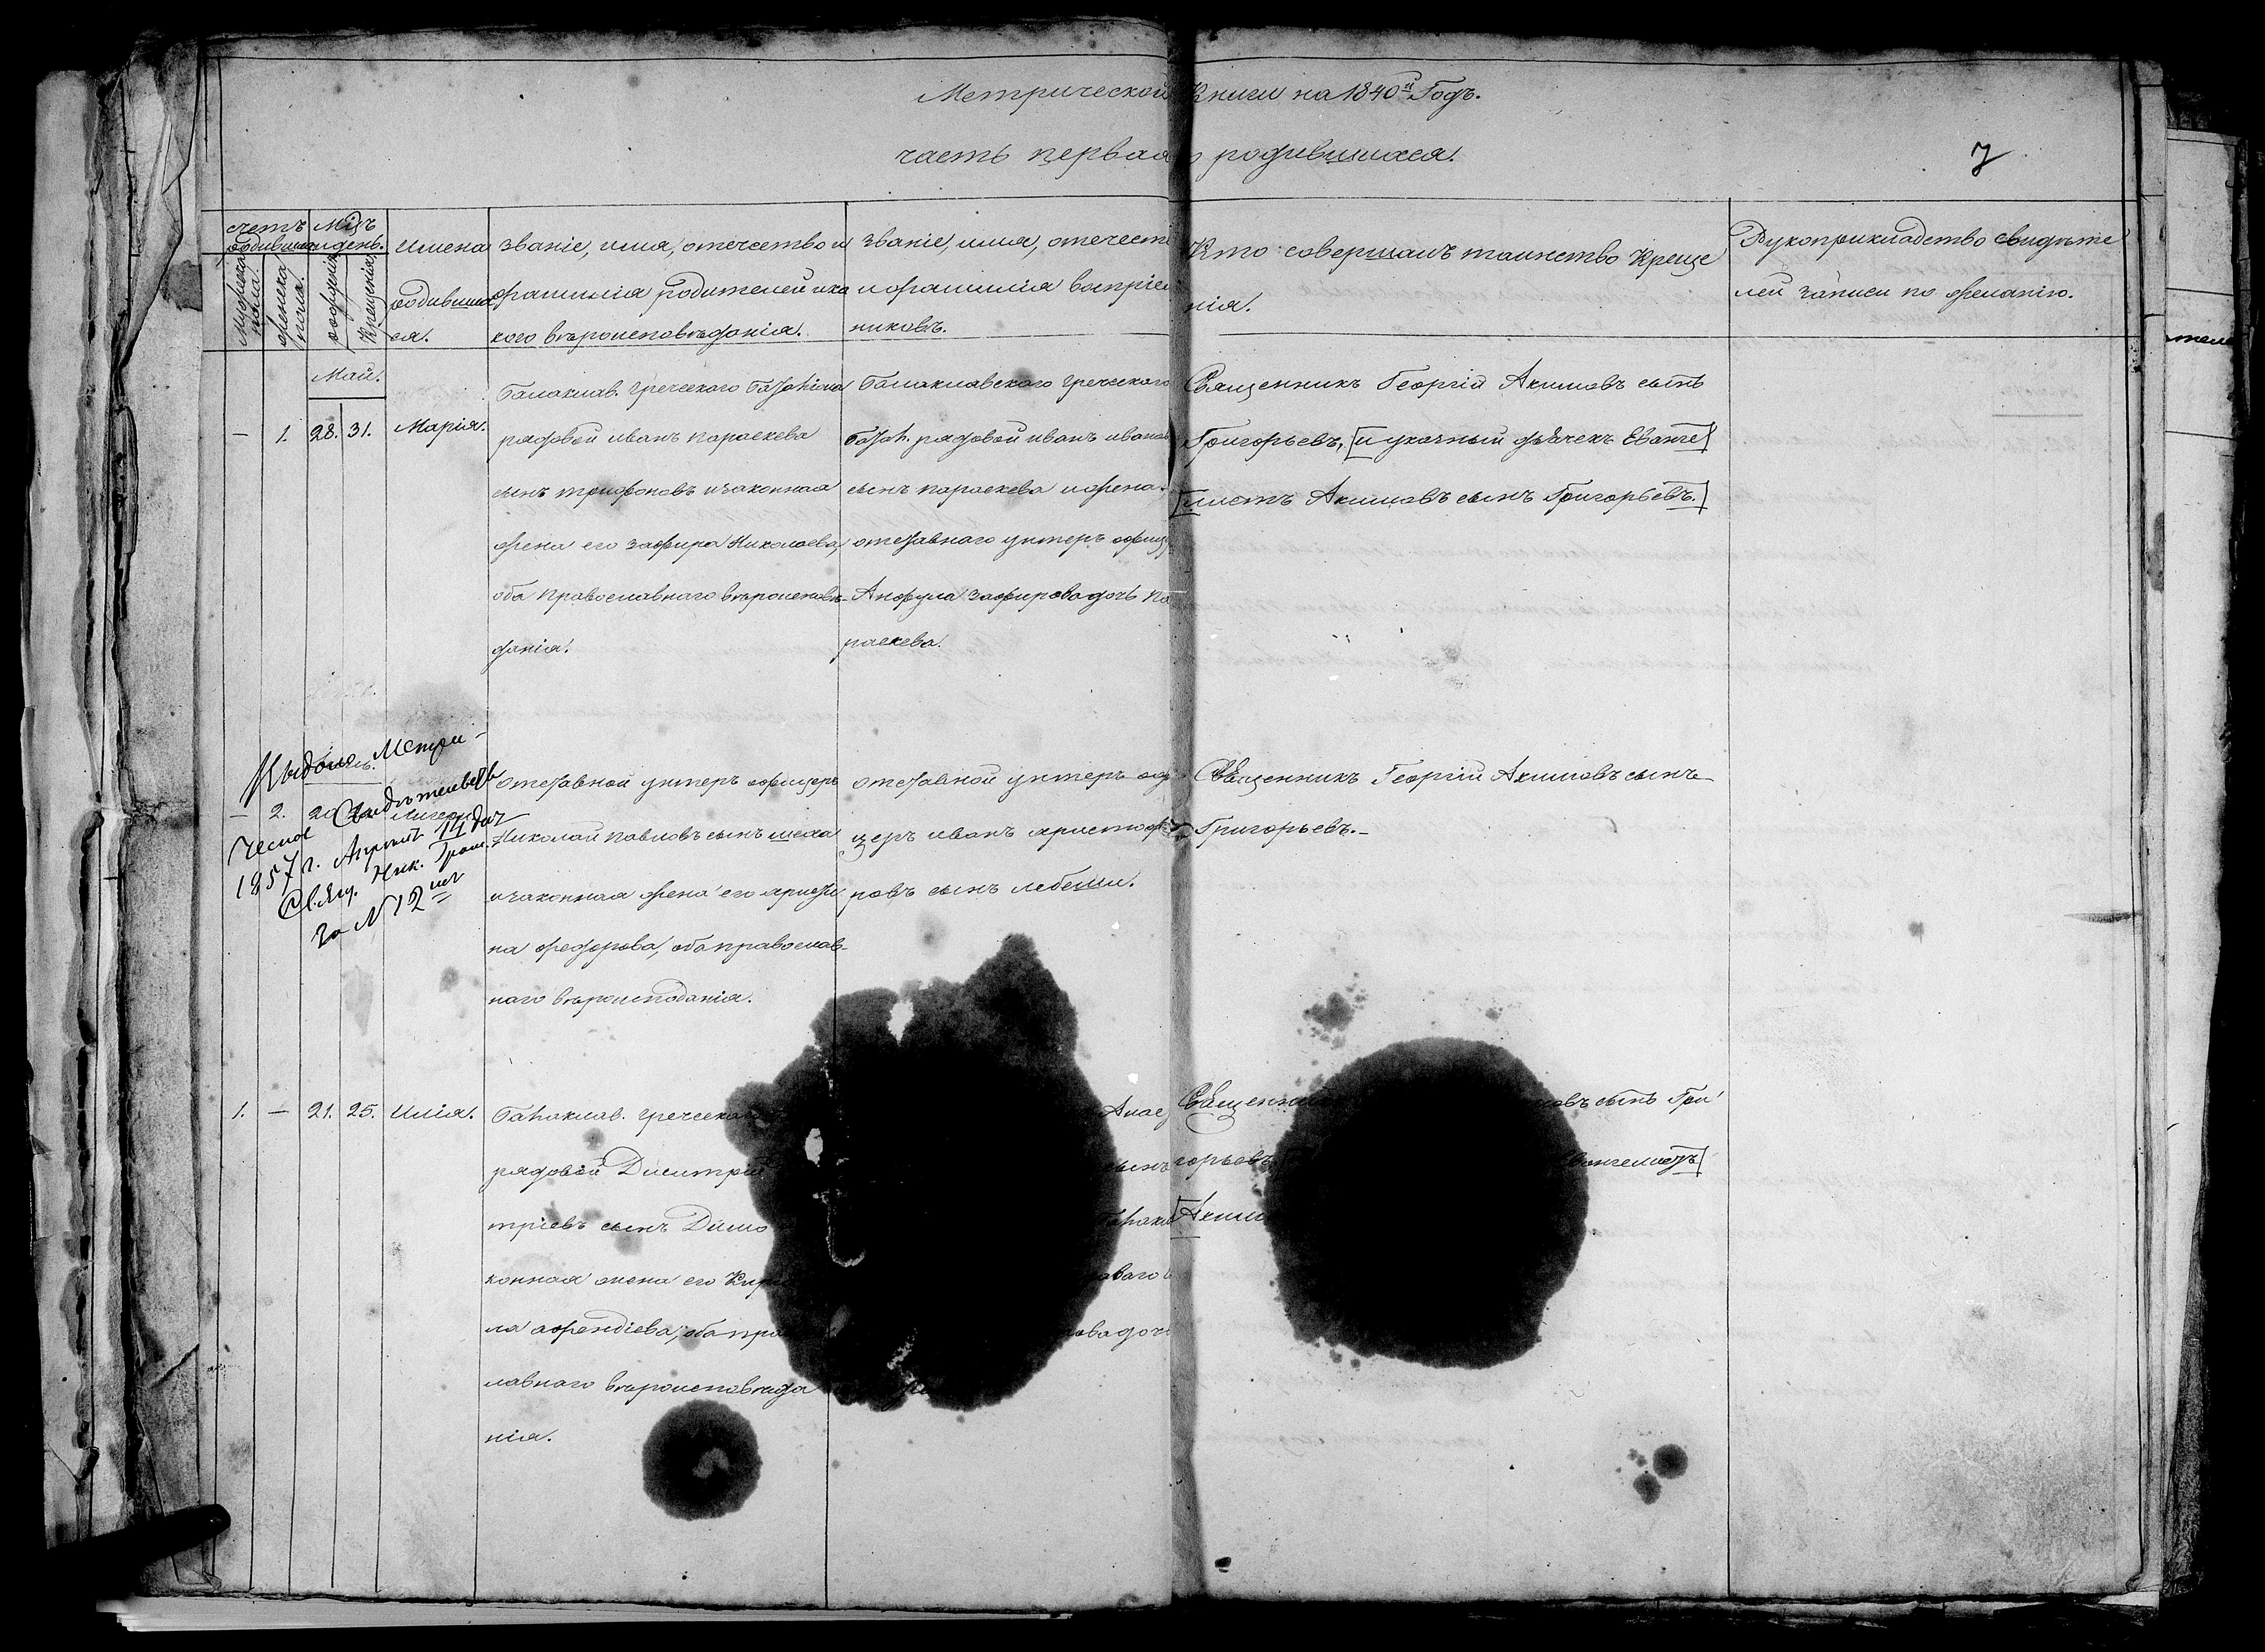 Метрической Книги на 1840й Годъ.
часть первая о родившихся.
7
счетъ родившихся
Мужеска пола.
женска пола.
Мѣцъ и день.
рожденія
Крещенія
Имена родивших
ся.
Званіе, имя, отчество и
фамилія родителей и ка
кого вѣроисповѣданія.
Званіе, имя, отечест
и фамилія воспріем
никовъ.
Кто совершалъ таинство Креще
нія.
Рукоприкладство свидѣте
лей записи по желанію.
Май.
— 1. 28. 31. Марія.
Балаклав. Греческого Баталіона
рядовой иванъ параскева
сынъ трифоновъ и законная
жена его Зафира Николаева,
оба православнаго вѣроисповѣ-
данія.
Балаклавского Греческого
Батал. рядовой иванъ иванов
сынъ параскева и жена
отставнаго унтеръ офиц
Анфула Зафирова дочь па
раскева.
Священникъ Георгій Акимовъ сынъ
Григорьевъ, [и указный дьячекъ Еванге]
[листъ Акимовъ сынъ Григорьевъ.]
Выдано Метри-
ческое Свидѣтельство
1857 г. Апрѣля 14 дня
Свящ. Ник.
за № 12
— 2. 20
отставной унтеръ офицеръ
Николай павловъ сынъ
и законная жена его христи
на федорова, оба православ-
наго вѣроисподанія.
отставной унтеръ оф
церъ иванъ христоф
ровъ сынъ лебеши.
Священникъ Георгій Акимовъ сынъ
Григорьевъ.-
1. — 21. 25. Илія.
Балаклав. Греческого
рядовой Димитрій
тріевъ сынъ Димо
конная жена его Кир
ла афендіева, оба пра
лавнаго вѣроисповѣда
нія.
Анас
сынъ
Балакл
ова доч
Священни
овъ сынъ Гри
горьевъ
вангелистъ]
[Акимо